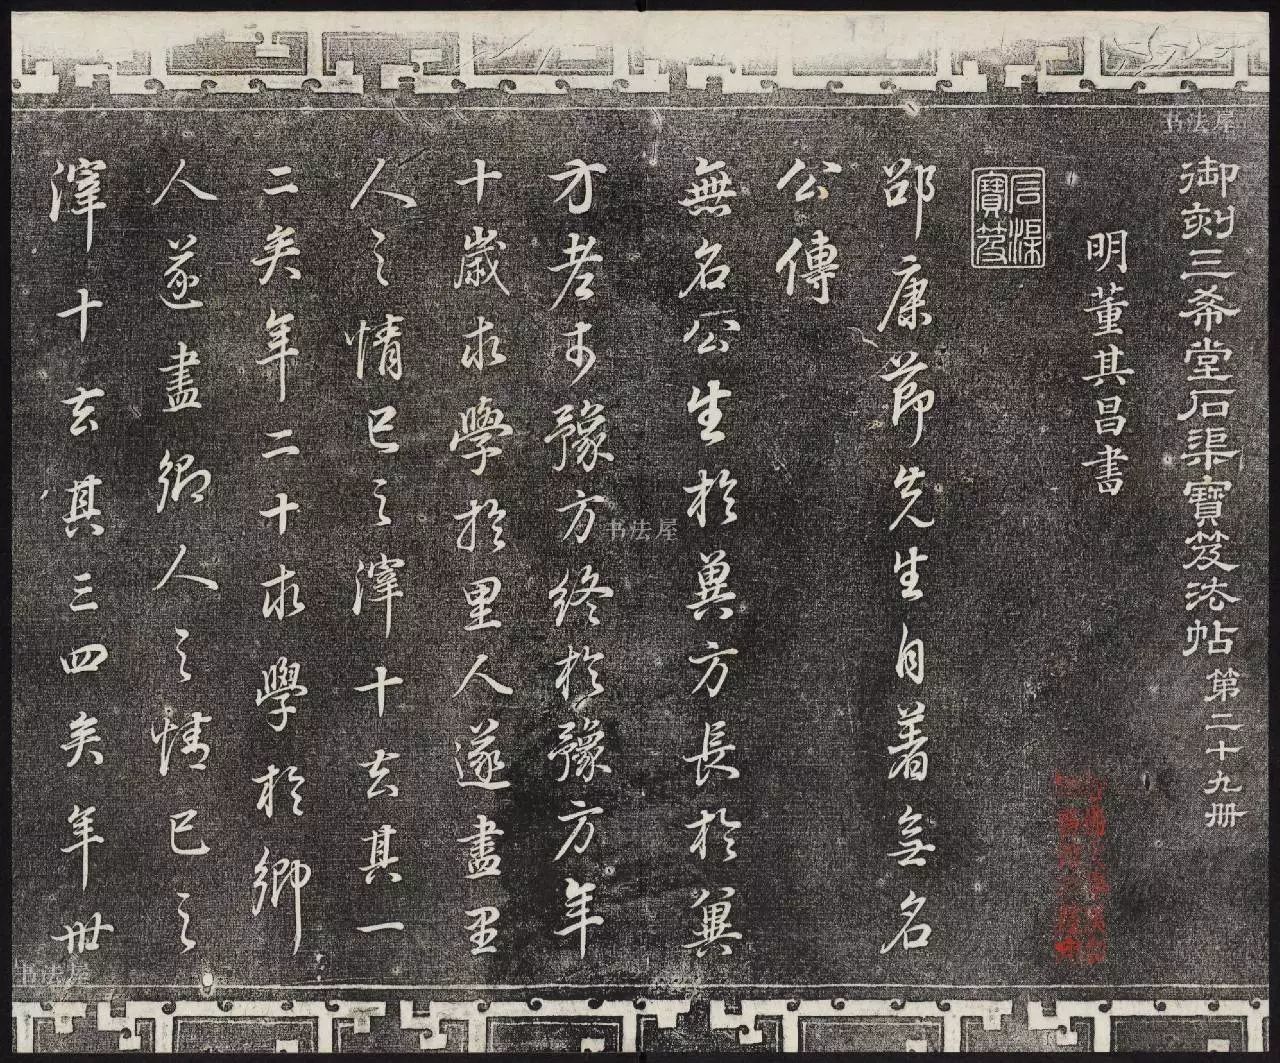 御刻三希堂石渠寶笈法帖第二十九册
明董其昌書
石渠寶笈
邵康節先生自着無名
公傳
無名公生於冀方長於冀
方老於豫方終於豫方年
十歲求學於里人遂盡里
人之情已之滓十去其一
二矣年二十求學於鄉
人遂盡鄉人之情已之
滓十去其三四矣年卅
书法屋
书法屋
书法屋